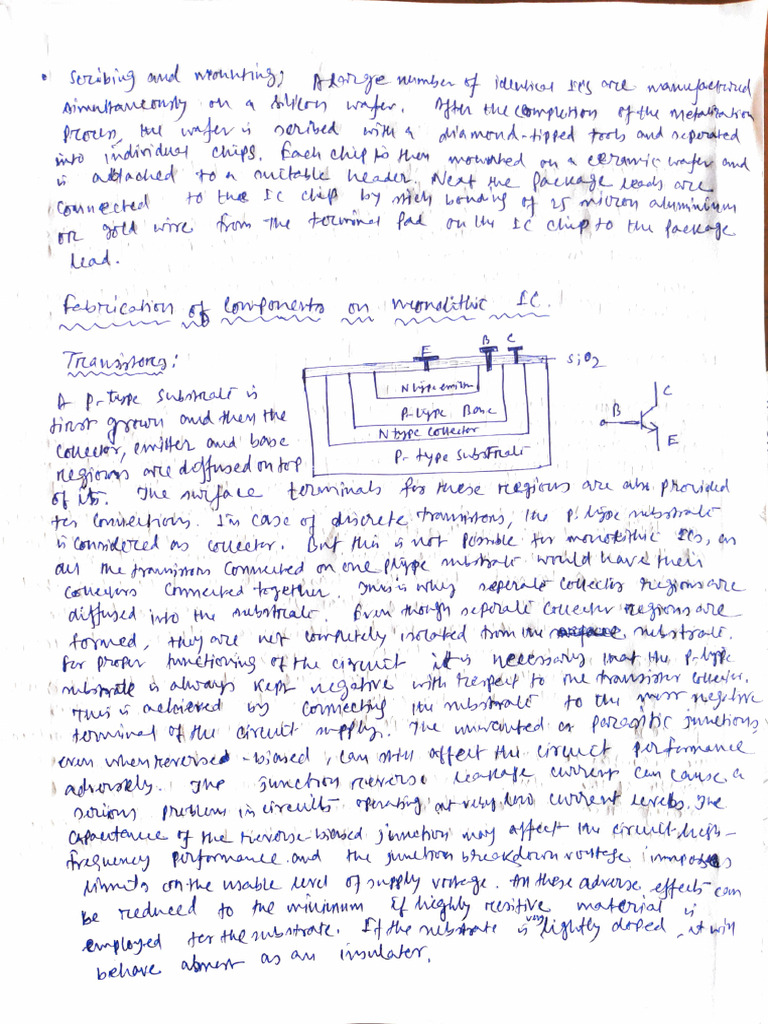 • Scribing and mounting; A large number of identical ICs are manufactured
simultaneously on a silicon wafer. After the completion of the metalization
process, the wafer is scribed with a diamond-tipped tools and seperated
into individual chips. Each chip is then mounted on a ceramic wafer and
is attached to a suitable header. Next the package leads are
connected to the IC chip by stich bonding of 25 micron aluminium
or gold wire from the terminal pad on the IC chip to the package
lead.
Fabrication of components on monolithic IC.
Transistors:
E B C SiO2
N type emitter
P-type Base
N type collector
P- type substrate
B C E
A P-type substrate is
first grown and then the
collector, emitter and base
regions are diffused on top
of it. The surface terminals for these regions are also provided
for connections. In case of discrete transistors, the P type substrate
is considered as collector. But this is not possible for monolithic ICs, as
all the transistors connected on one ptype substrate would have their
collectors connected together. This is why seperate collector regions are
diffused into the substrate. Even though seperate collector regions are
formed, they are not completely isolated from the substrate.
For proper functioning of the circuit it is necessary that the P-type
substrate is always kept negative with respect to the transistor collector.
This is achieved by connecting the substrate to the most negative
terminal of the circuit supply. The unwanted or parasitic junctions
even when reversed-biased, can still affect the circuit performance
adversely. The junction reverse leakage current can cause a
serious problem in circuits operating at very low current levels. The
capacitance of the reverse-biased junction may affect the circuit high-
frequency performance and the junction breakdown voltage imposes
limits on the usable level of supply voltage. All these adverse effects can
be reduced to the minimum if highly resitive material is
employed for the substrate. If the substrate is very lightly doped, it will
behave almost as an insulater.